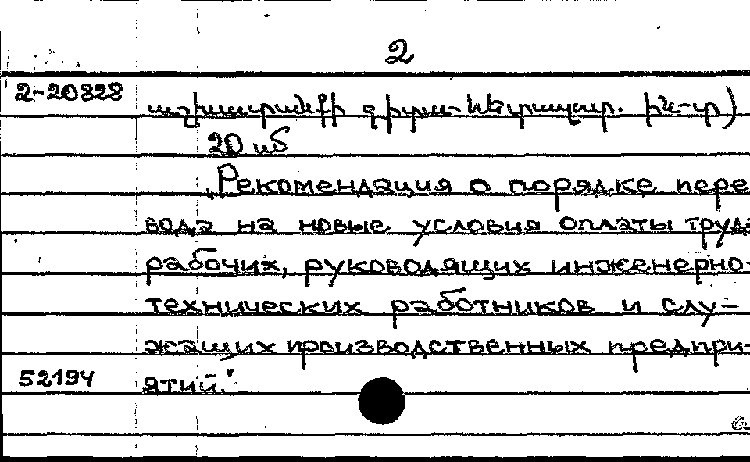 2
2-20328
աշխատանքի գիտա-հետազոտ. ին-տ)
20 սմ
„Рекомендация о порядке пере
вода на новые условия оплаты труда
рабочих, руководящих инженерно-
технических работников и слу-
жащих производственных предпри-
52194
ятий."